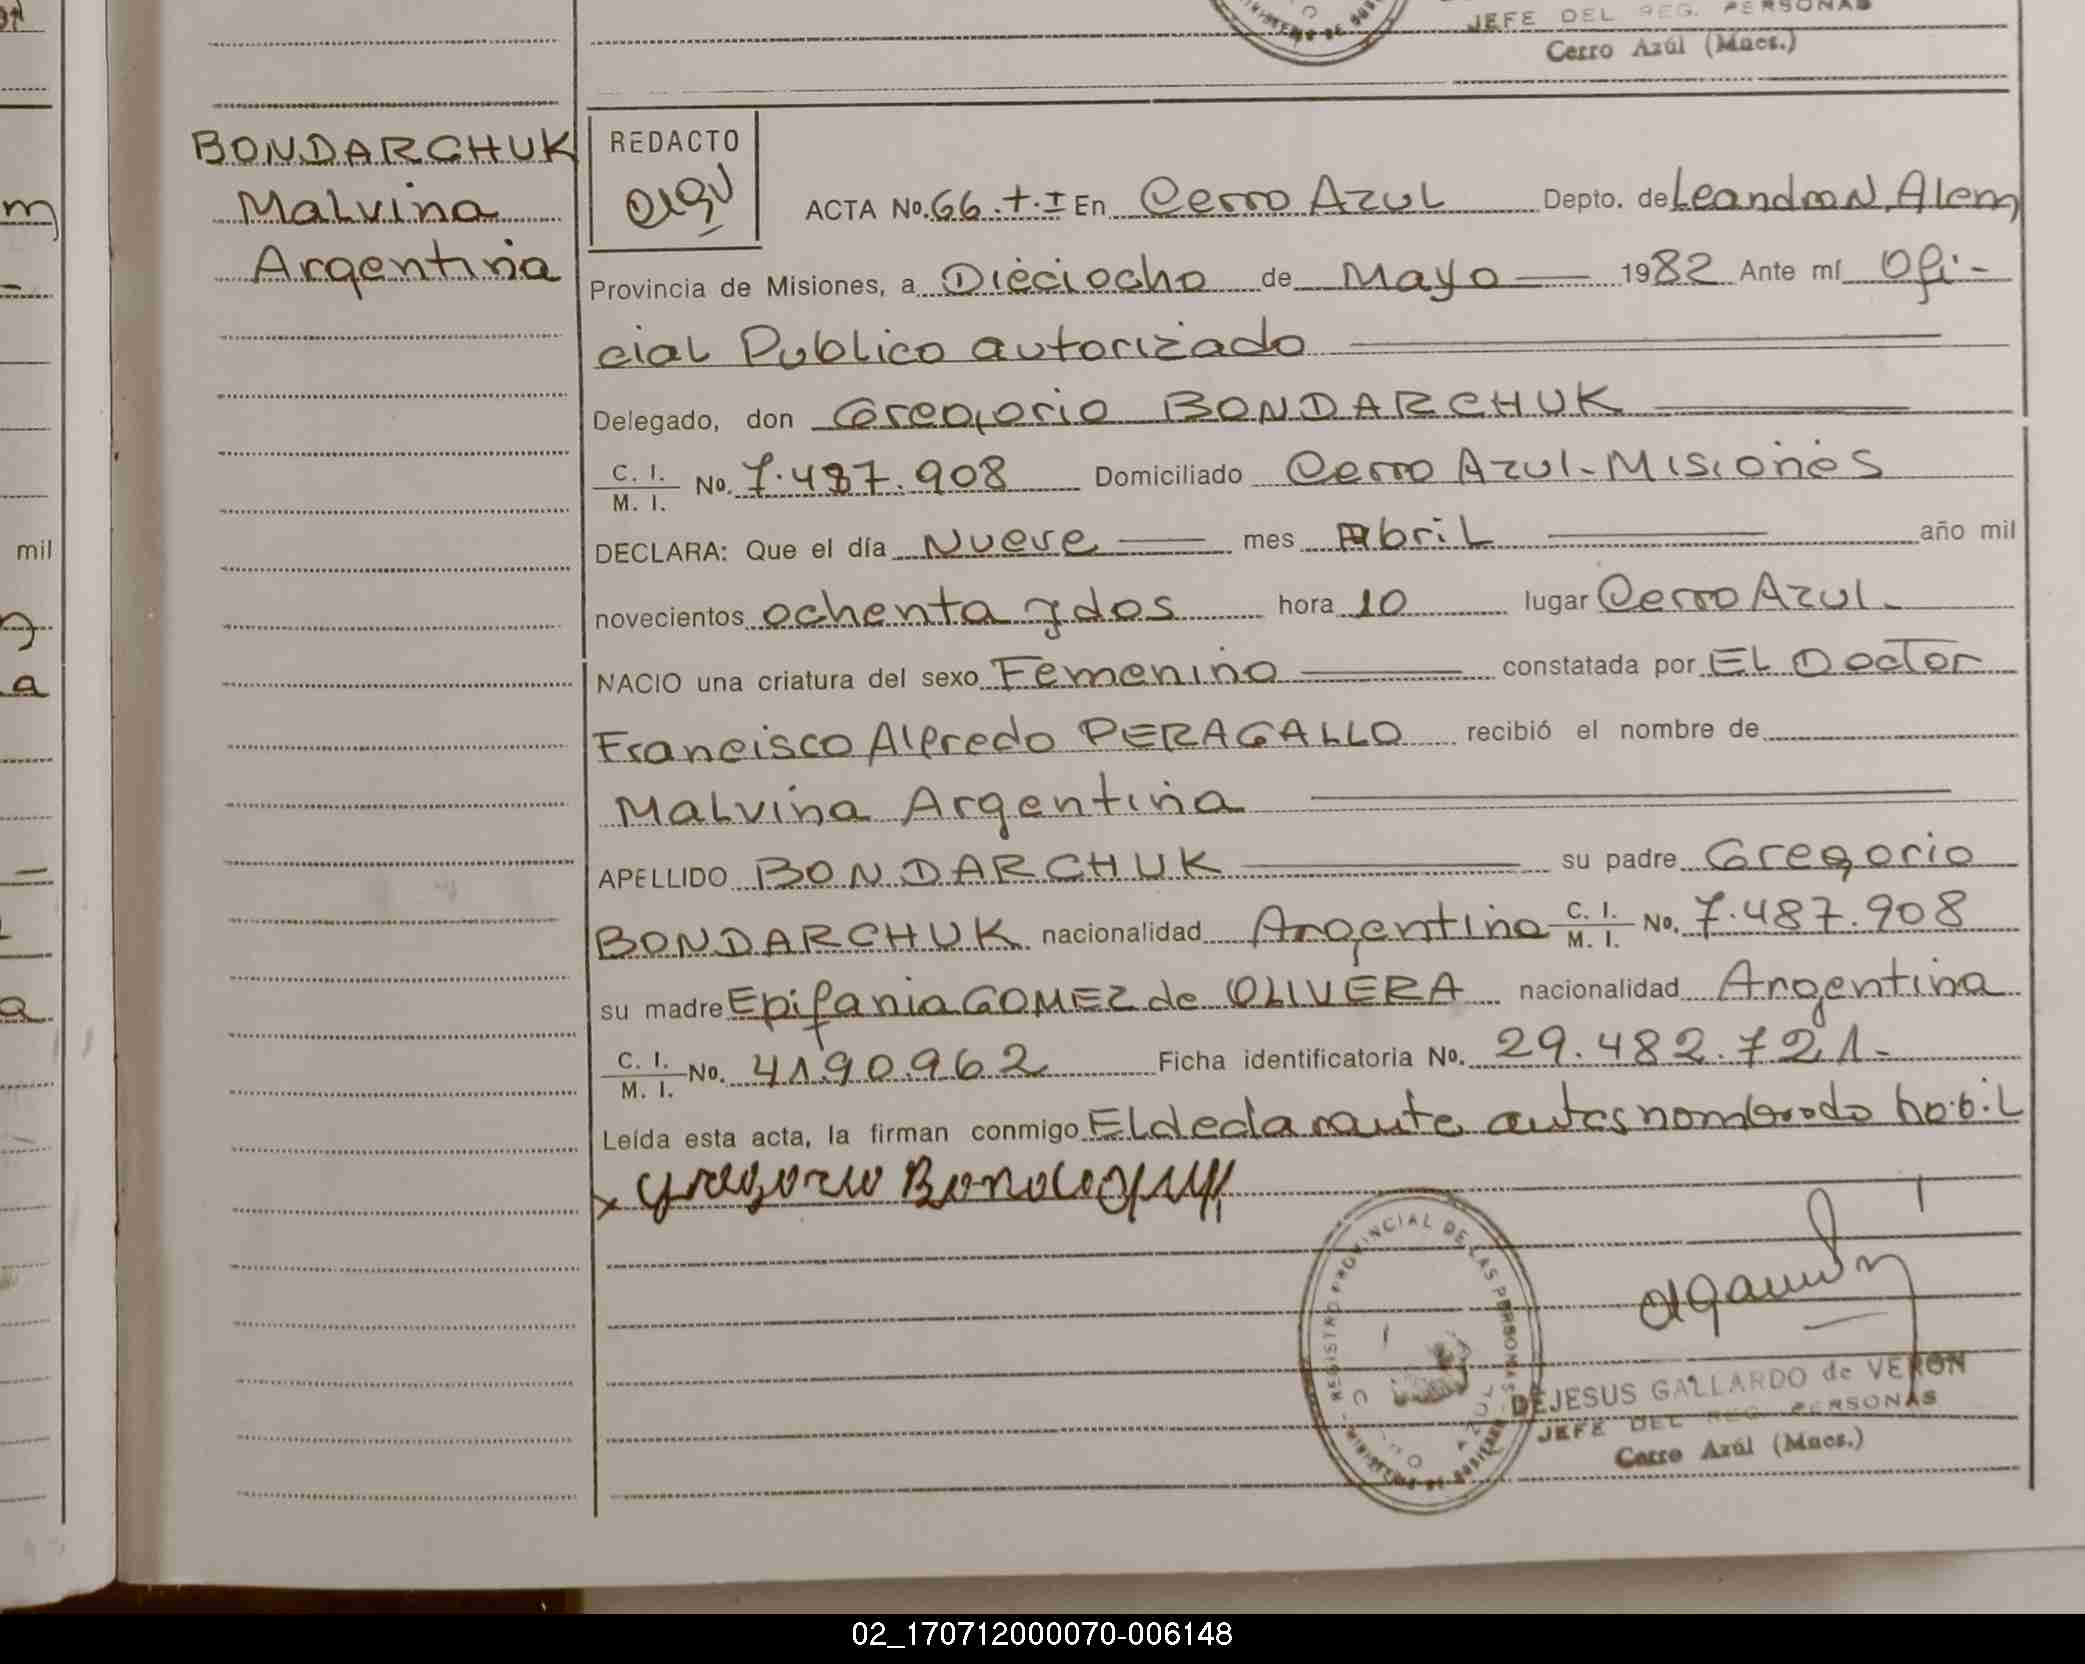 JEFE DEL REG. PERSONAS
Cerro Azúl (Mnes.)
BONDARCHUK
Malvina
Argentina
REDACTO
ACTA No. 66.T.I En Cerro Azul Depto. de Leandro N. Alem
Provincia de Misiones, a Dieciocho de Mayo 1982 Ante mí Ofi-
cial Publico autorizado
Delegado, don Gregorio BONDARCHUK
C. I.
M. I. No. 7.487.908 Domiciliado Cerro Azul-Misiones
DECLARA: Que el día Nueve mes Abril año mil
novecientos ochenta y dos hora 10 lugar Cerro Azul.
NACIO una criatura del sexo Femenino constatada por EL Doctor
Francisco Alfredo PERAGALLO recibió el nombre de
Malvina Argentina
APELLIDO BONDARCHUK su padre Gregorio
BONDARCHUK nacionalidad Argentina C. I. M. I. No. 7.487.908
su madre Epifania GOMEZ de OLIVERA nacionalidad Argentina
C. I.
M. I. No. 4190962 Ficha identificatoria No. 29.482.721-
Leída esta acta, la firman conmigo El declarante antes nombrado habil
x Gregorio
REGISTRO PROVINCIAL DE LAS PERSONAS
DEJESUS GALLARDO de VERON
JEFE DEL REG. PERSONAS
Cerro Azúl (Mnes.)
mil
a
a
02_170712000070-006148